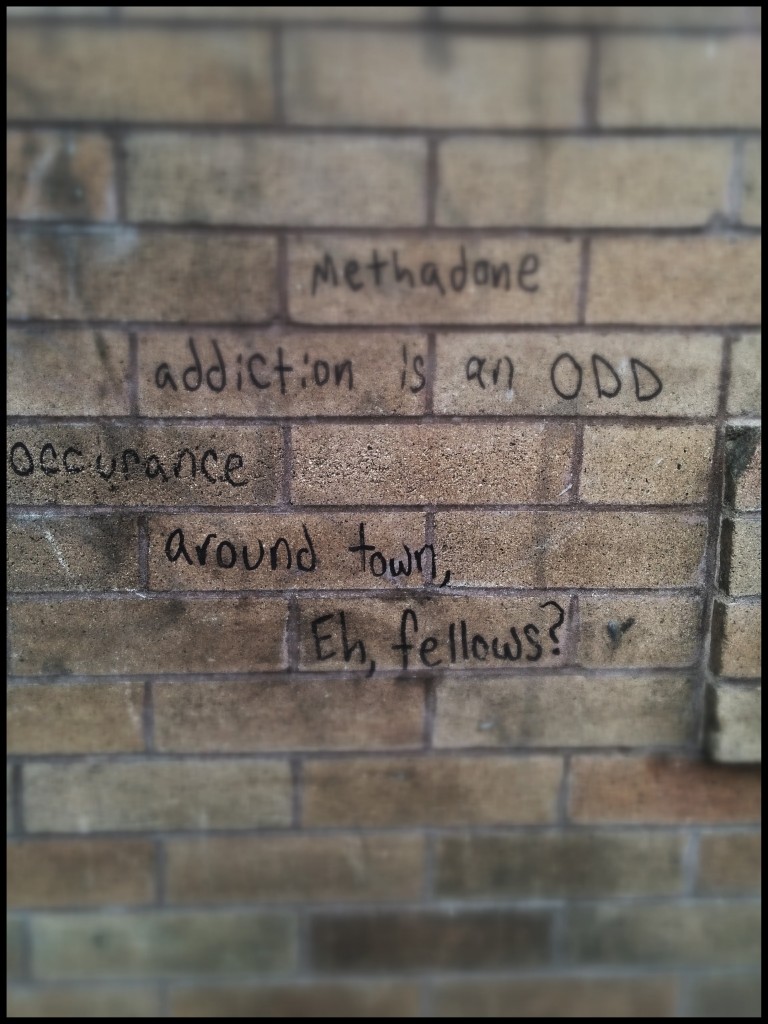 Methadone
addiction is an ODD
occurance
around town,
Eh, fellows?